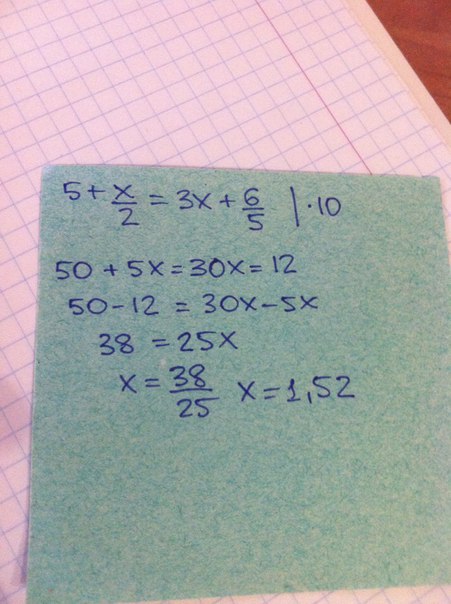 5 + x/2 = 3x + 6/5 | · 10
50 + 5x = 30x = 12
50 - 12 = 30x - 5x
38 = 25x
x = 38/25 x = 1,52